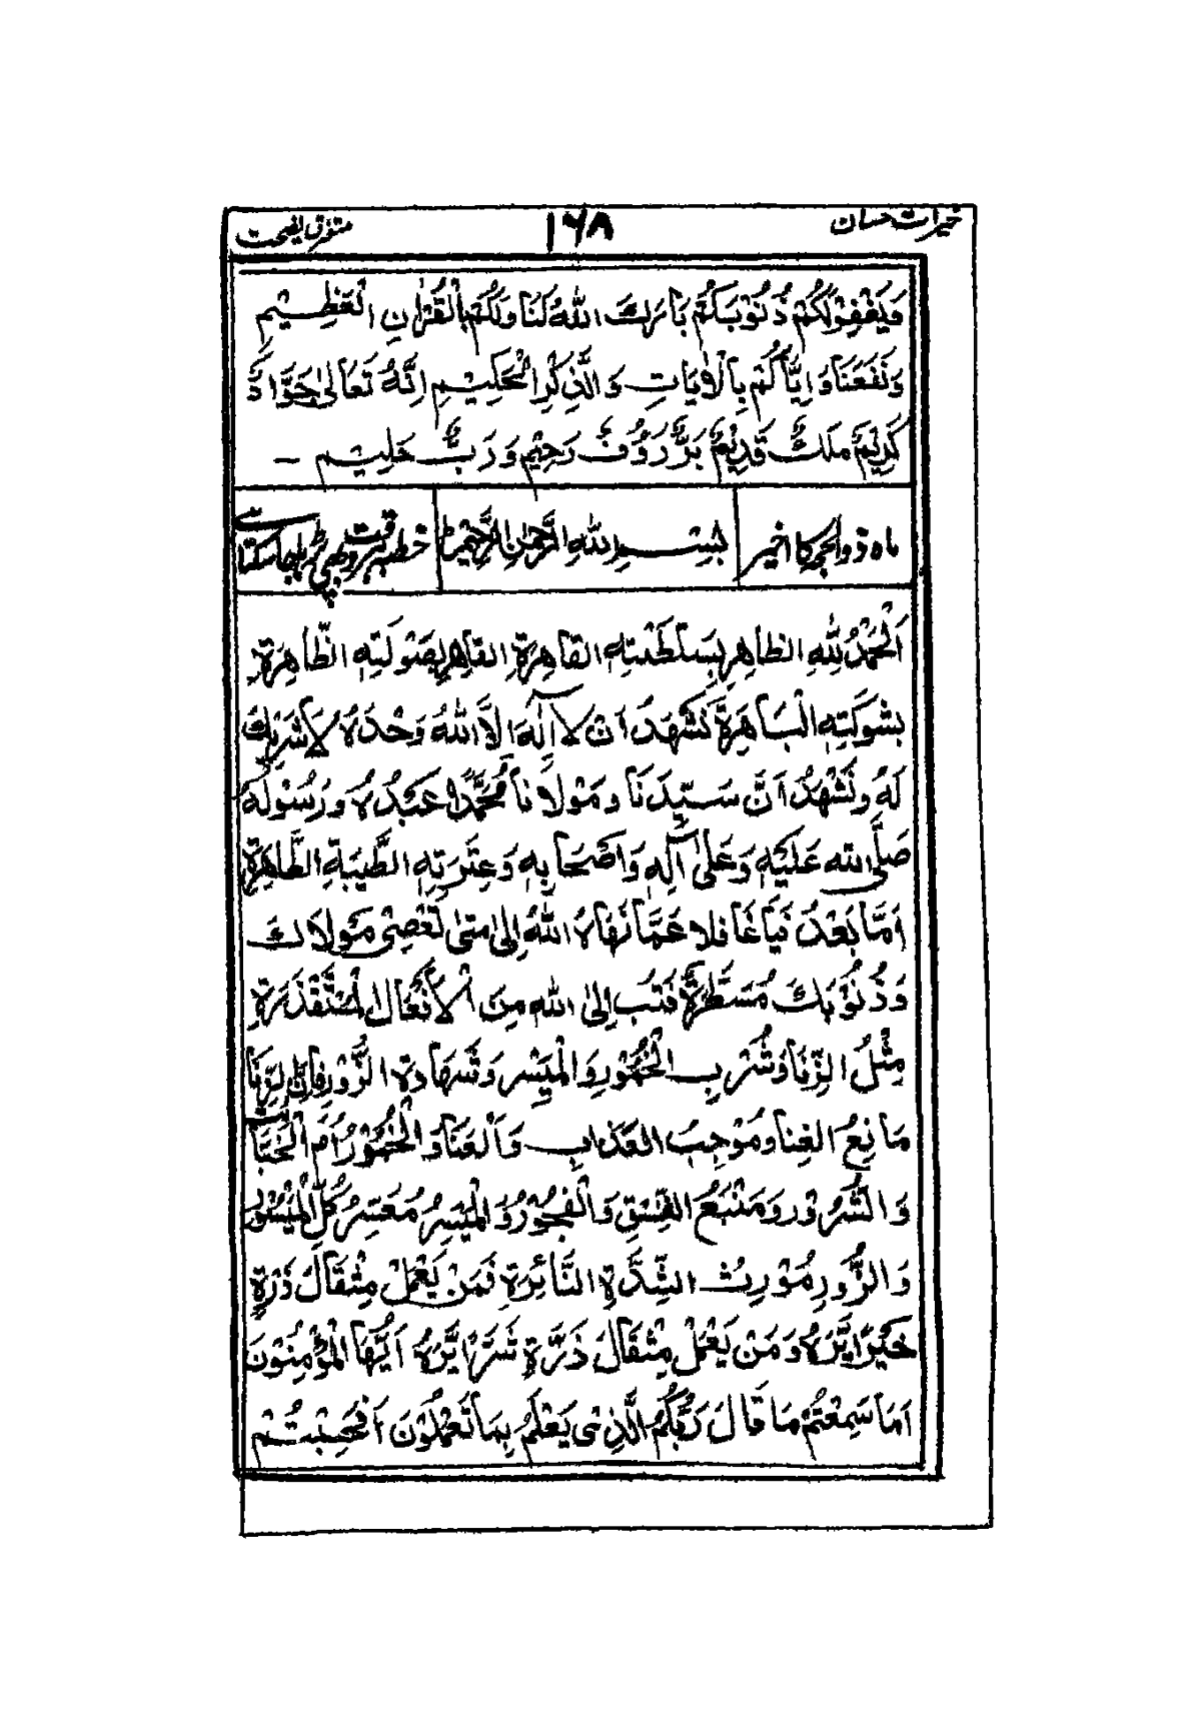 خیرات حسان ۱۶۸ متفرق نصیحت
وَيَغْفِرْلَكُمْ ذُنُوْبَكُمْ بَارَكَ اللهُ لَنَا وَلَكُمْ بِالْقُرْاٰنِ الْعَظِيْمِ
وَنَفَعَنَا وَاِيَّاكُمْ بِالْاٰيَاتِ وَالذِّكْرِ الْحَكِيْمِ اِنَّهُ تَعَالىٰ جَوَّادٌ
كَرِيْمٌ مَلِكٌ قَدِيْمٌ بَرٌّ رَؤُفٌ رَحِيْمٌ وَرَبٌّ حَلِيْم ــ
ماہ ذوالحجہ کا اخیر
بِسْمِ اللهِ الرَّحْمٰنِ الرَّحِيْمِ
خطبہ ہر وقت بھی پڑھا جا سکتا ہے
اَلْحَمْدُ لِلّٰهِ الظاهِرِ بِسَلْطَنَتِهِ القاهِرَةِ القاهِرِ بِصَوْلَتِهِ الظَّاهِرَةِ
بِشَوْكَتِهِ الْبَاهِرَةِ نَشْهَدُ اَنْ لَا اِلٰهَ اِلَّا اللهُ وَحْدَهٗ لَا شَرِيْكَ
لَهٗ وَنَشْهَدُ اَنَّ سَيِّدَنَا وَمَوْلَانَا مُحَمَّدًا عَبْدُهٗ وَرَسُوْلُهٗ
صَلَّى الله عَلَيْهِ وَعَلىٰ آلِهٖ وَاَصْحَابِهٖ وَعِتْرَتِهِ الطَّيِّبَةِ الطَّاهِرَةِ
اَمَّا بَعْدُ فَيَا غَافلا عَمَّا نَهَاهُ اللهُ اِلىٰ مَتىٰ تَعْصِىْ مَوْلَاكَ
وَذُنُوْبَكَ مُسَطَّرَةٌ فَتُبْ اِلىٰ اللهِ مِنَ الْاَفْعَالِ الْمُسْتَقْذَرَةِ
مِثْلُ الزِّنَا وَشُرْبِ الْخُمُوْرِ وَالْمَيْسِرِ وَشَهَادَةِ الزُّوْرِ فَاِنَّ الزِّنَا
مَانِعُ الغِنَا وَمُوْجِبُ العَذَابِ وَالْعَنَا وَالْخُمُوْرُ اُمُّ الْخَبَائِث
وَالشُّرُوْرِ وَمَنْبَعُ الفِسْقِ وَالْفُجُوْرِ وَالْمَيْسِرُ مُعَسِّرُ كُلِّ الْمَيْسُوْرِ
وَالزُّورِ مُوْرِثُ الشِّدَّةِ النَّائِرَةِ فَمَنْ يَّعْمَلْ مِثْقَالَ ذَرَّةٍ
خَيْرًا يَّرَهٗ وَمَنْ يَّعْمَلْ مِثْقَالَ ذَرَّةٍ شَرًّا يَّرَهٗ اَيُّهَا الْمُؤْمِنُوْنَ
اَمَا سَمِعْتُمْ مَا قَالَ رَبُّكُمُ الَّذِىْ يَعْلَمُ بِمَا تَعْمَلُوْنَ اَفَحَسِبْتُمْ